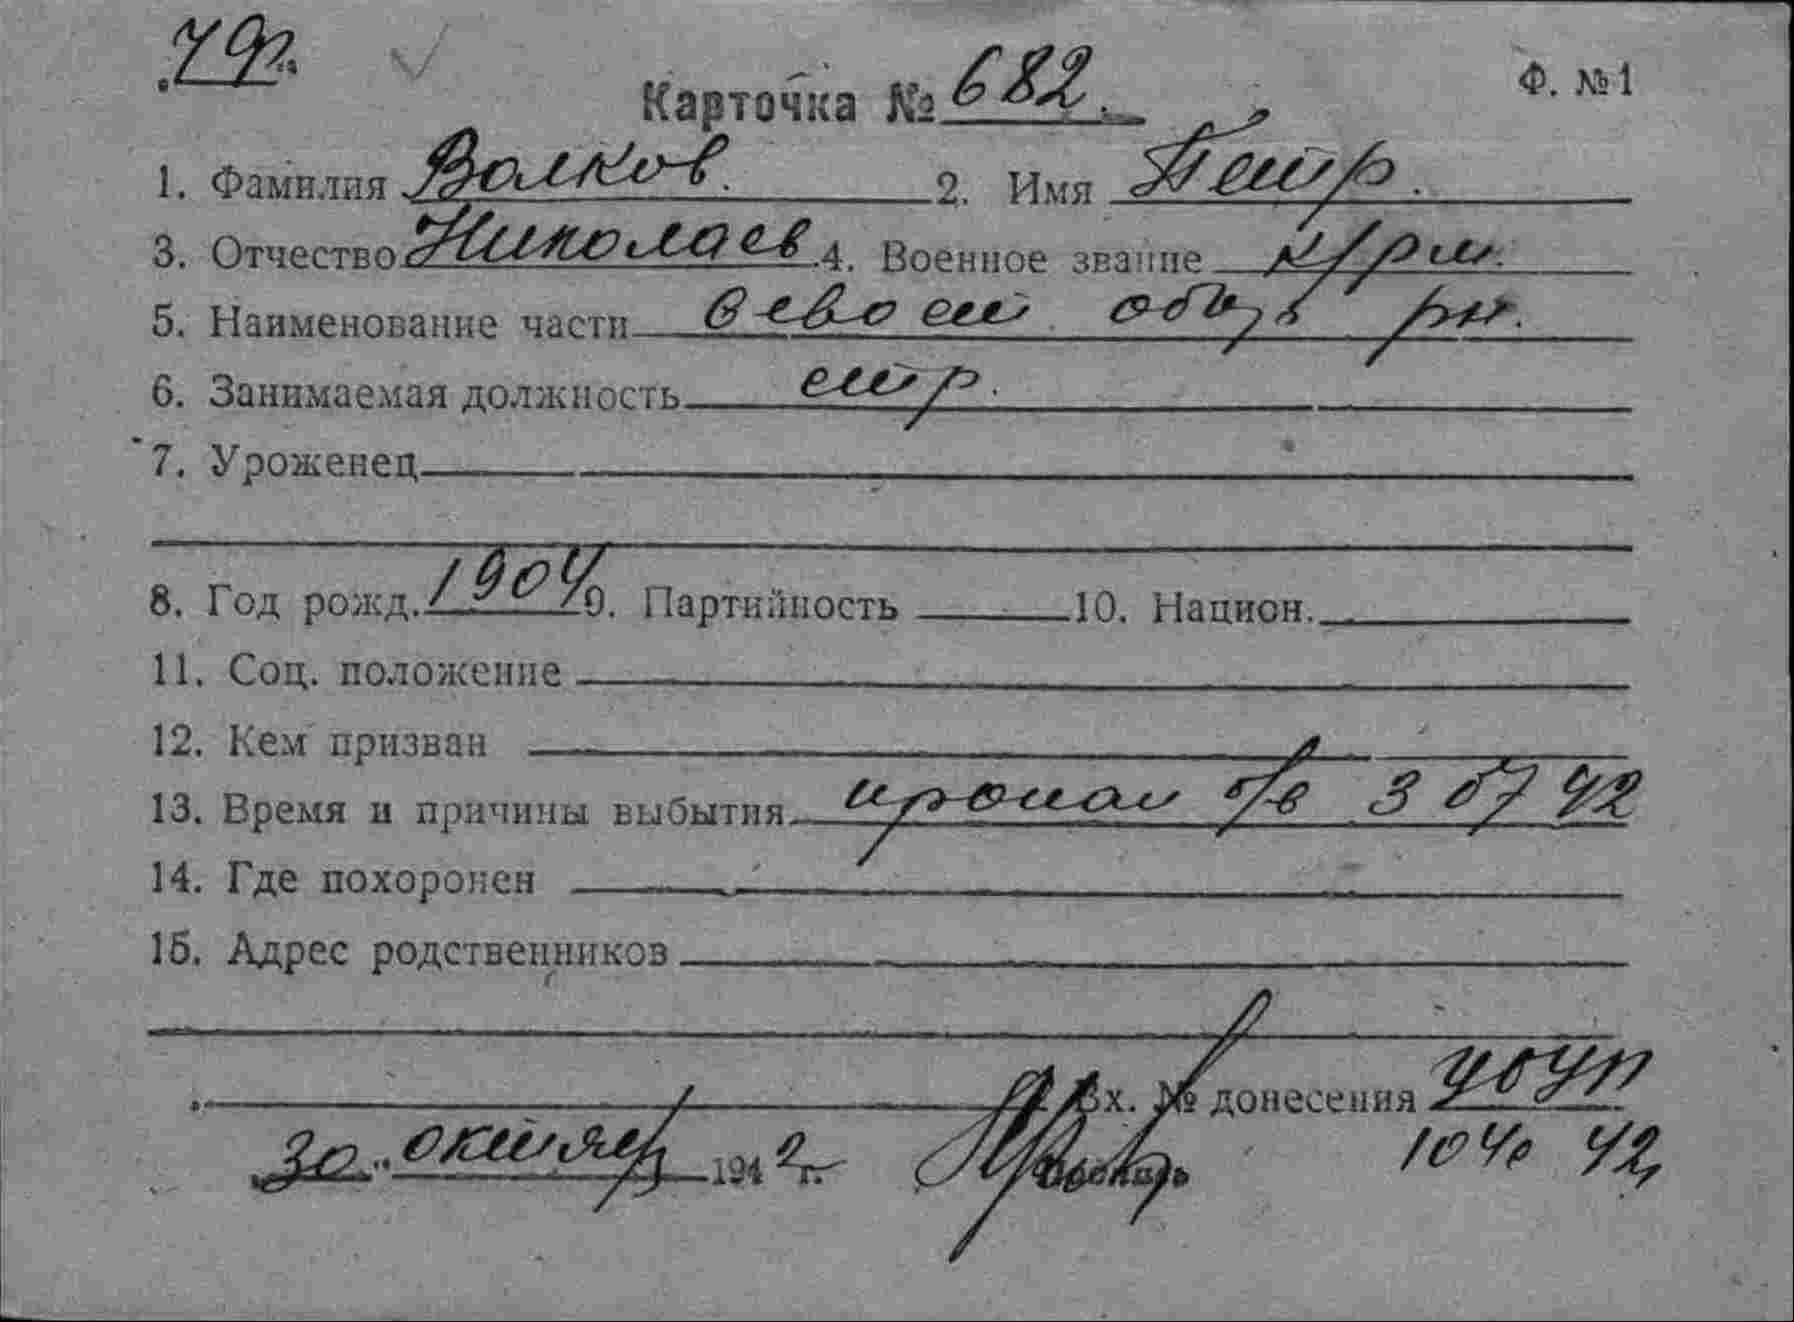 79г.
Карточка № 682. Ф. №1
1. Фамилия Волков. 2. Имя Петр.
3. Отчество Николаев 4. Военное звание к/рм.
5. Наименование части Севост. обор. рн.
6. Занимаемая должность стр.
7. Уроженец
8. Год рожд. 1904 9. Партийность 10. Национ.
11. Соц. положение
12. Кем призван
13. Время и причины выбытия пропал б/в 3 07 42
14. Где похоронен
15. Адрес родственников
Вх. № донесения
30 " октября 1942 г. Подпись 42